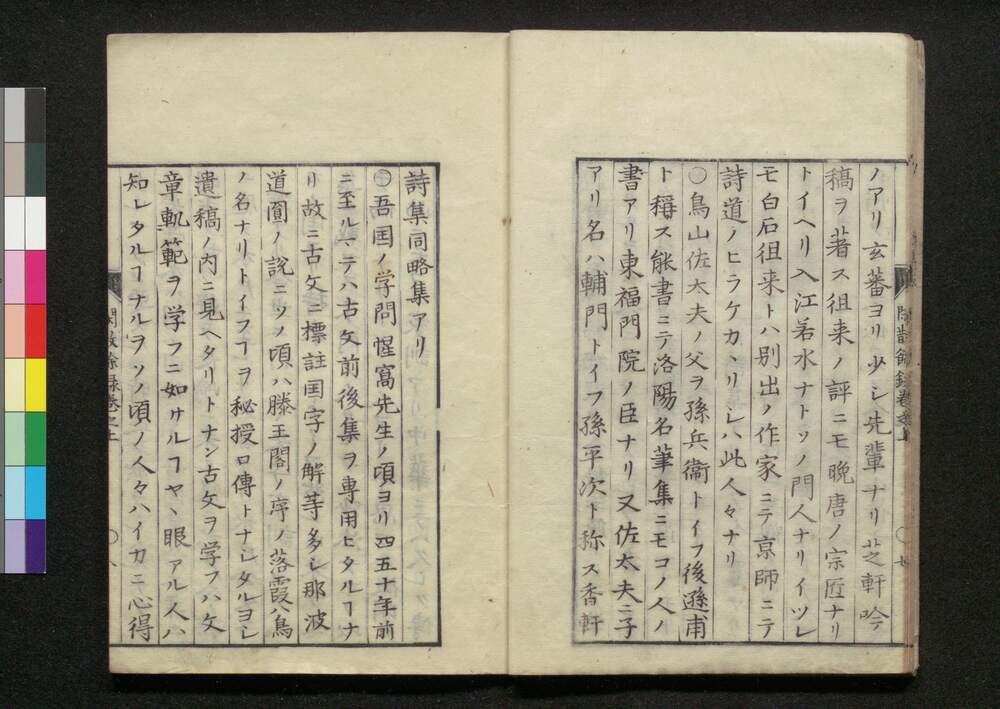 ノアリ玄蕃ヨリ少シ先輩ナリ芝軒吟
稿ヲ著ス徂来ノ評ニモ晩唐ノ宗匠ナリ
トイヘリ入江若水ナトソノ門人ナリイツレ
モ白石徂来トハ別出ノ作家ニテ京師ニテ
詩道ノヒラケカヽリシハ此人々ナリ
〇鳥山佐大夫ノ父ヲ孫兵衞トイフ後遜甫
ト稱ス能書ニテ洛陽名筆集ニモコノ人ノ
書アリ東福門院ノ臣ナリ又佐太夫ニ子
アリ名ハ輔門トイフ孫平次ト称ス香軒
閒散餘録卷之上
〇 七
詩集同略集アリ
〇吾国ノ学問惺窩先生ノ頃ヨリ四五十年前
ニ至ルマテハ古文前後集ヲ専用ヒタルヿナ
リ故ニ古文ニ標註国字ノ解等多シ那波
道圓ノ説ニソノ頃ハ滕王閣ノ序ノ落霞ハ鳥
ノ名ナリトイフヿヲ秘授口傳トナシタルヨシ
遺稿ノ内ニ見ヘタリトナン古文ヲ学フハ文
章軌範ヲ学フニ如サルヿヤヽ眼アル人ハ
知レタルヿナルヲソノ頃ノ人々ハイカニ心得
閒散餘録卷之上
〇 八